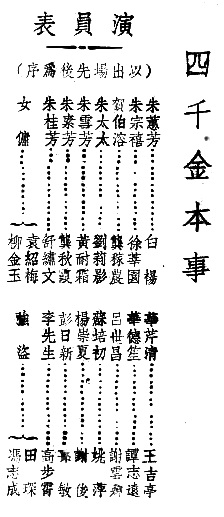 四千金本事
演員表
（以出場先後爲序）
朱蕙芳……白楊
朱宗禧……徐莘園
賀伯溶……龔稼農
朱太太……劉莉影
朱雪芳……黃耐霜
朱素芳……龔秋霞
朱桂芳……舒繡文
女傭……袁紹梅
柳金玉
華芹清……王吉亭
華德笙……譚志遠
呂世昌……謝雲卿
蘇培初……姚萍
楊崇夏……謝俊
彭日新……敏
李先生……高步霄
強盜……田琛
馮志成